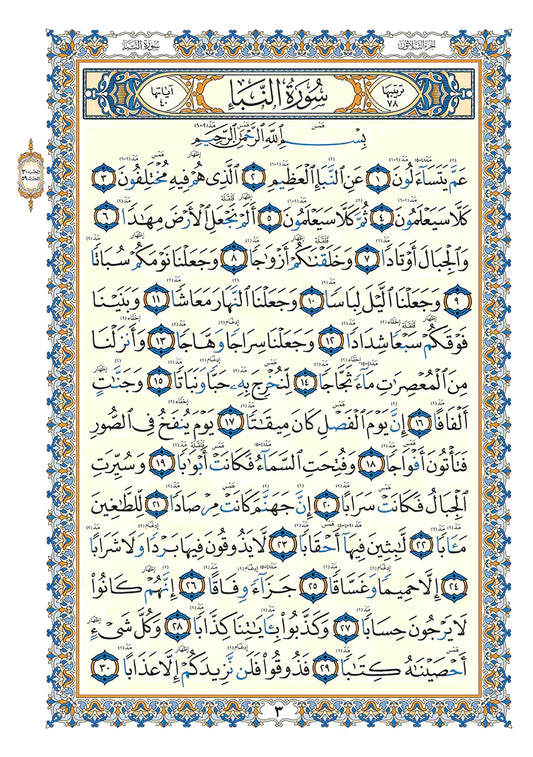 سُورَةُ النَّبَإِ
الجزء الثلاثون
ترتيبها ٧٨
سُورَةُ النَّبَإِ
آياتها ٤٠
بِسْمِ اللَّهِ الرَّحْمَٰنِ الرَّحِيمِ
عَمَّ يَتَسَاءَلُونَ ١ عَنِ النَّبَإِ الْعَظِيمِ ٢ الَّذِي هُمْ فِيهِ مُخْتَلِفُونَ ٣
كَلَّا سَيَعْلَمُونَ ٤ ثُمَّ كَلَّا سَيَعْلَمُونَ ٥ أَلَمْ نَجْعَلِ الْأَرْضَ مِهَٰدًا ٦
وَالْجِبَالَ أَوْتَادًا ٧ وَخَلَقْنَٰكُمْ أَزْوَٰجًا ٨ وَجَعَلْنَا نَوْمَكُمْ سُبَاتًا
٩ وَجَعَلْنَا الَّيْلَ لِبَاسًا ١٠ وَجَعَلْنَا النَّهَارَ مَعَاشًا ١١ وَبَنَيْنَا
فَوْقَكُمْ سَبْعًا شِدَادًا ١٢ وَجَعَلْنَا سِرَاجًا وَهَّاجًا ١٣ وَأَنزَلْنَا
مِنَ الْمُعْصِرَٰتِ مَاءً ثَجَّاجًا ١٤ لِنُخْرِجَ بِهِ حَبًّا وَنَبَاتًا ١٥ وَجَنَّٰتٍ
أَلْفَافًا ١٦ إِنَّ يَوْمَ الْفَصْلِ كَانَ مِيقَٰتًا ١٧ يَوْمَ يُنفَخُ فِي الصُّورِ
فَتَأْتُونَ أَفْوَاجًا ١٨ وَفُتِحَتِ السَّمَاءُ فَكَانَتْ أَبْوَٰبًا ١٩ وَسُيِّرَتِ
الْجِبَالُ فَكَانَتْ سَرَابًا ٢٠ إِنَّ جَهَنَّمَ كَانَتْ مِرْصَادًا ٢١ لِلطَّٰغِينَ
مَـَٔابًا ٢٢ لَّٰبِثِينَ فِيهَا أَحْقَابًا ٢٣ لَا يَذُوقُونَ فِيهَا بَرْدًا وَلَا شَرَابًا
٢٤ إِلَّا حَمِيمًا وَغَسَّاقًا ٢٥ جَزَاءً وِفَاقًا ٢٦ إِنَّهُمْ كَانُوا
لَا يَرْجُونَ حِسَابًا ٢٧ وَكَذَّبُوا بِـَٔايَٰتِنَا كِذَّابًا ٢٨ وَكُلَّ شَيْءٍ
أَحْصَيْنَٰهُ كِتَٰبًا ٢٩ فَذُوقُوا فَلَن نَّزِيدَكُمْ إِلَّا عَذَابًا ٣٠
٣